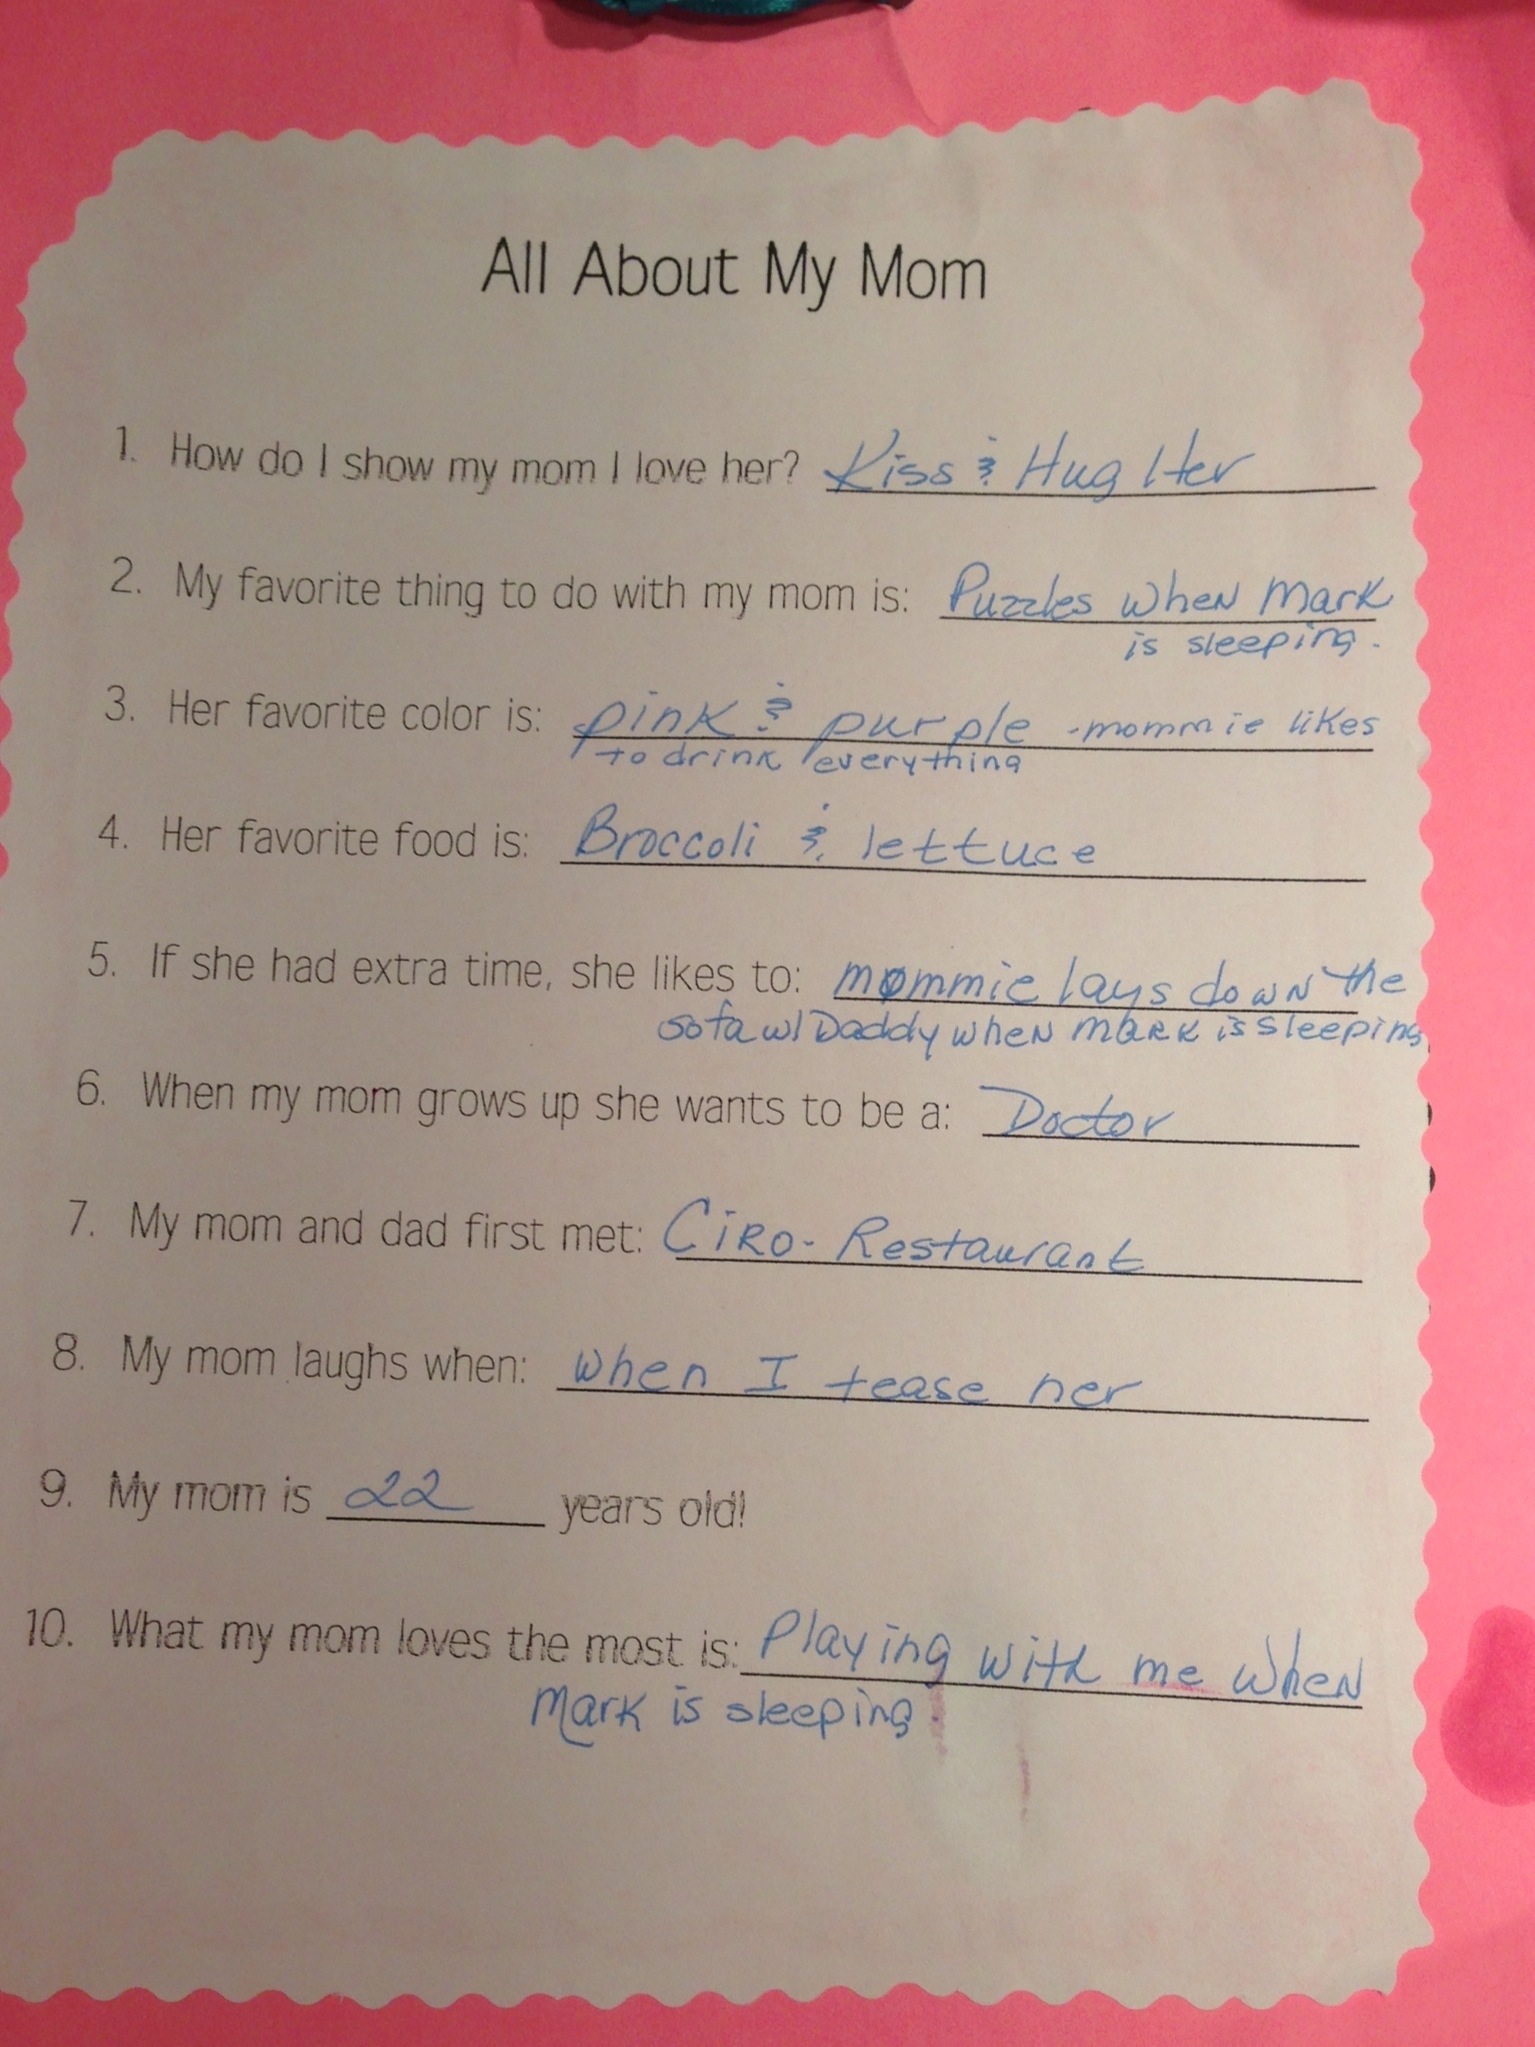 All About My Mom
1. How do I show my mom I love her? Kiss & Hug Her
2. My favorite thing to do with my mom is: Puzzles when Mark
is sleeping.
3. Her favorite color is: pink & purple - mommie likes
to drink everything
4. Her favorite food is: Broccoli & lettuce
5. If she had extra time, she likes to: mommie lays down the
sofa w/ Daddy when Mark is sleeping
6. When my mom grows up she wants to be a: Doctor
7. My mom and dad first met: Ciro - Restaurant
8. My mom laughs when: when I tease her
9. My mom is 22 years old!
10. What my mom loves the most is: Playing with me when
Mark is sleeping.